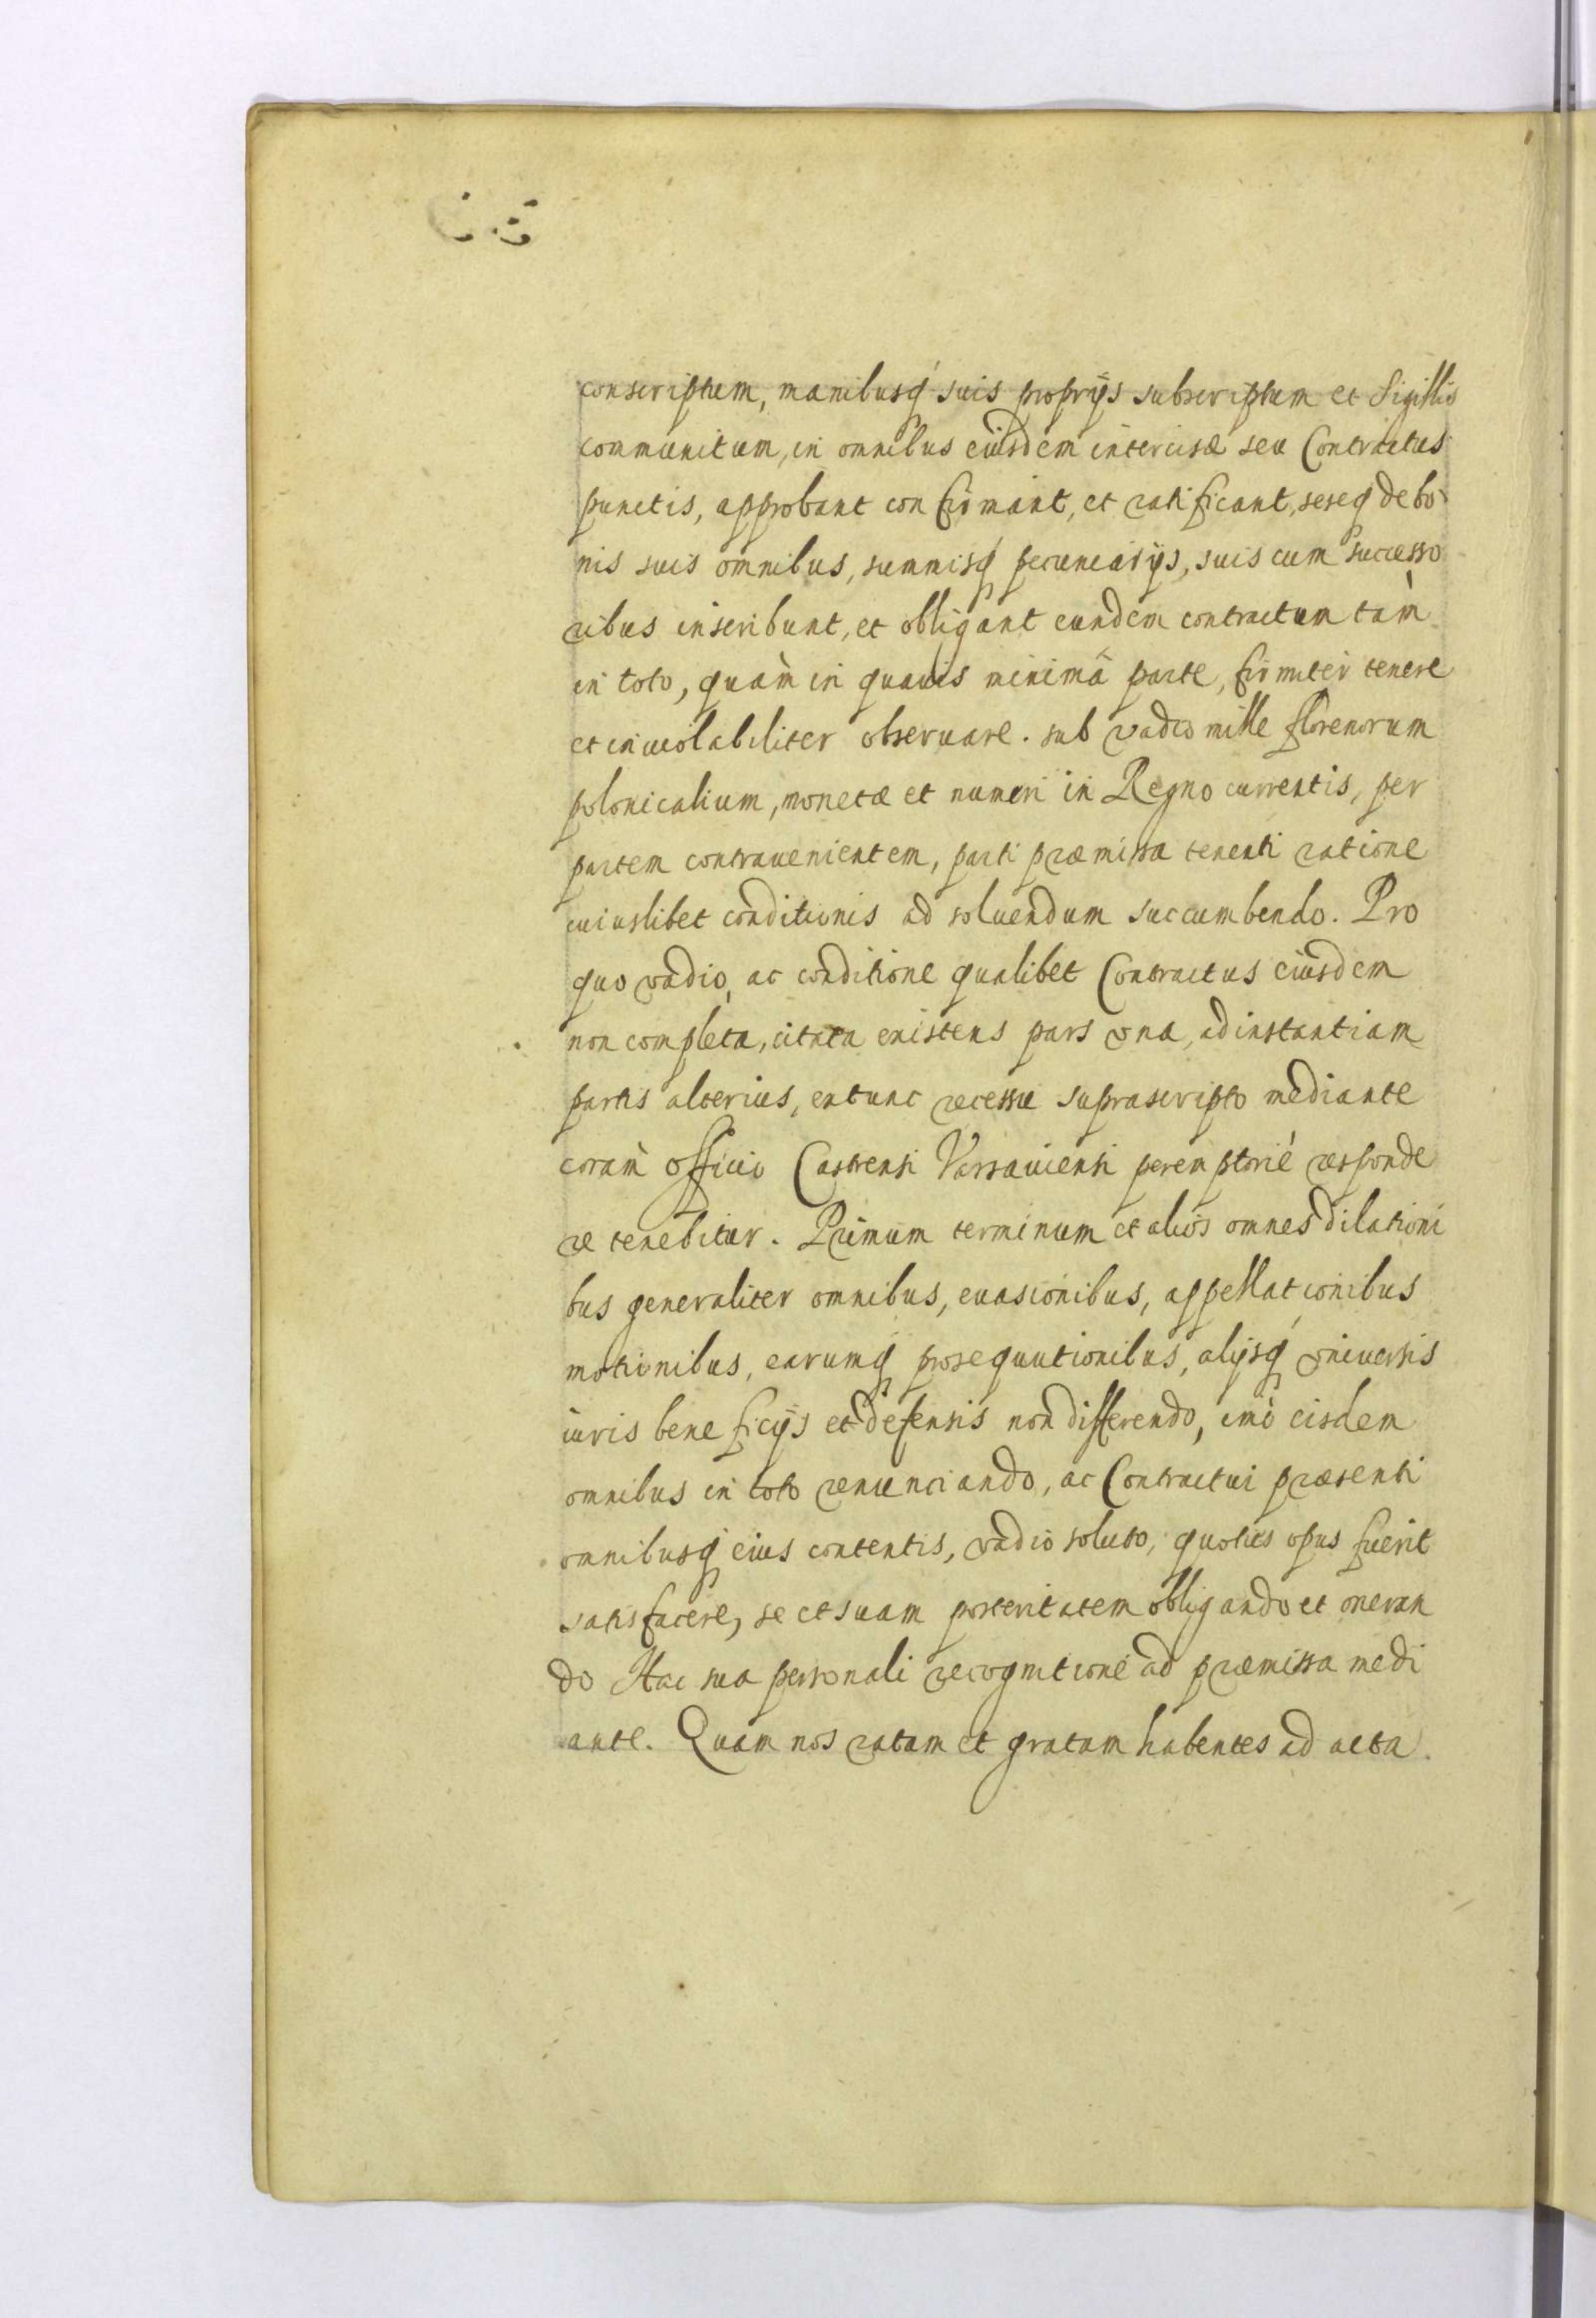 conscriptum, manibusq́ suis proprijs subscriptum et Sigillis
communitum, in omnibus eiusdem intercisæ seu Contractus
punctis, approbant confirmant, et ratificant, seseq de bo
nis suis omnibus, summisq́ pecuniarijs, suis cum successo
ribus inscribunt, et obligant eundem contractum tàm
in toto, quàm in quauis minimâ parte, firmiter tenere
et inuiolabiliter obseruare. sub vadio mille florenorum
polonicalium, monetæ et numeri in Regno currentis, per
partem contrauenientem, parti præmissa tenenti ratione
cuiuslibet conditionis ad soluendum succumbendo. Pro
quo vadio, ac conditione qualibet Contractus eiusdem
non completa, citata existens pars vna, ad instantiam
partis alterius, extunc recessu suprascripto mediante
coràm officio Castrensi Varsauiensi peremptoriè responde
re tenebitur. Primum terminum et alios omnes dilationi
bus generaliter omnibus, euasionibus, appellationibus
motionibus, earumq́ prosequutionibus, alijsq́ vniuersis
iuris beneficijs et defensis non differendo, imò eisdem
omnibus in toto renunciando, ac Contractui præsenti
omnibusq́ eius contentis, vadio soluto, quoties opus fuerit
satisfacere, se et suam posteritatem obligando et oneran
do Hac sua personali recognitione ad præmissa medi
ante. Quam nos ratam et gratam habentes ad acta